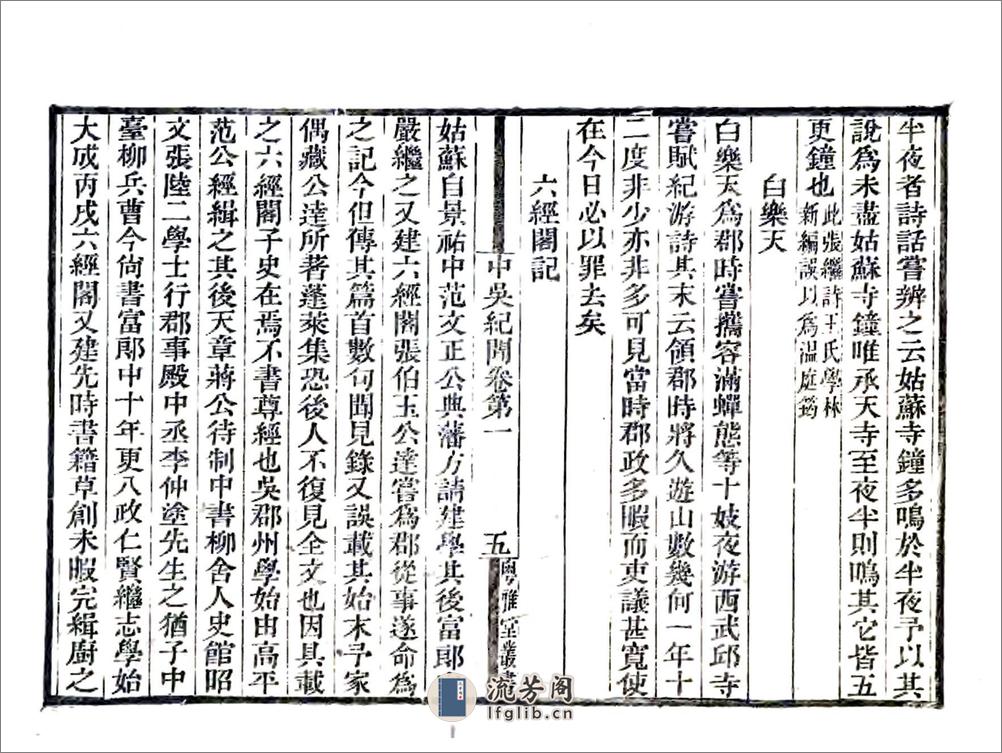 半夜者詩話嘗辨之云姑蘇寺鐘多鳴於半夜予以其
說爲未盡姑蘇寺鐘唯承天寺至夜半則鳴其它皆五
更鐘也此張繼詩王氏學林
新編誤以爲温庭筠
白樂天
白樂天爲郡時嘗攜容滿蟬態等十妓夜游西武邱寺
嘗賦紀游詩其末云領郡時將久遊山數幾何一年十
二度非少亦非多可見當時郡政多暇而吏議甚寬使
在今日必以罪去矣
六經閣記
中吳紀聞卷第一
五
粵雅堂叢書
姑蘇自景祐中范文正公典藩方請建學其後富郎
嚴繼之又建六經閣張伯玉公達嘗爲郡從事遂命爲
之記今但傳其篇首數句聞見錄又誤載其始末予家
偶藏公達所著蓬萊集恐後人不復見全文也因具載
之六經閣子史在焉不書尊經也吳郡州學始由高平
范公經緝之其後天章蔣公待制中書柳舍人史館昭
文張陸二學士行郡事殿中丞李仲塗先生之猶子中
臺柳兵曹今尙書富郎中十年更八政仁賢繼志學始
大成丙戌六經閣又建先時書籍草創未暇完緝廚之
流芳阁
lfglib.cn